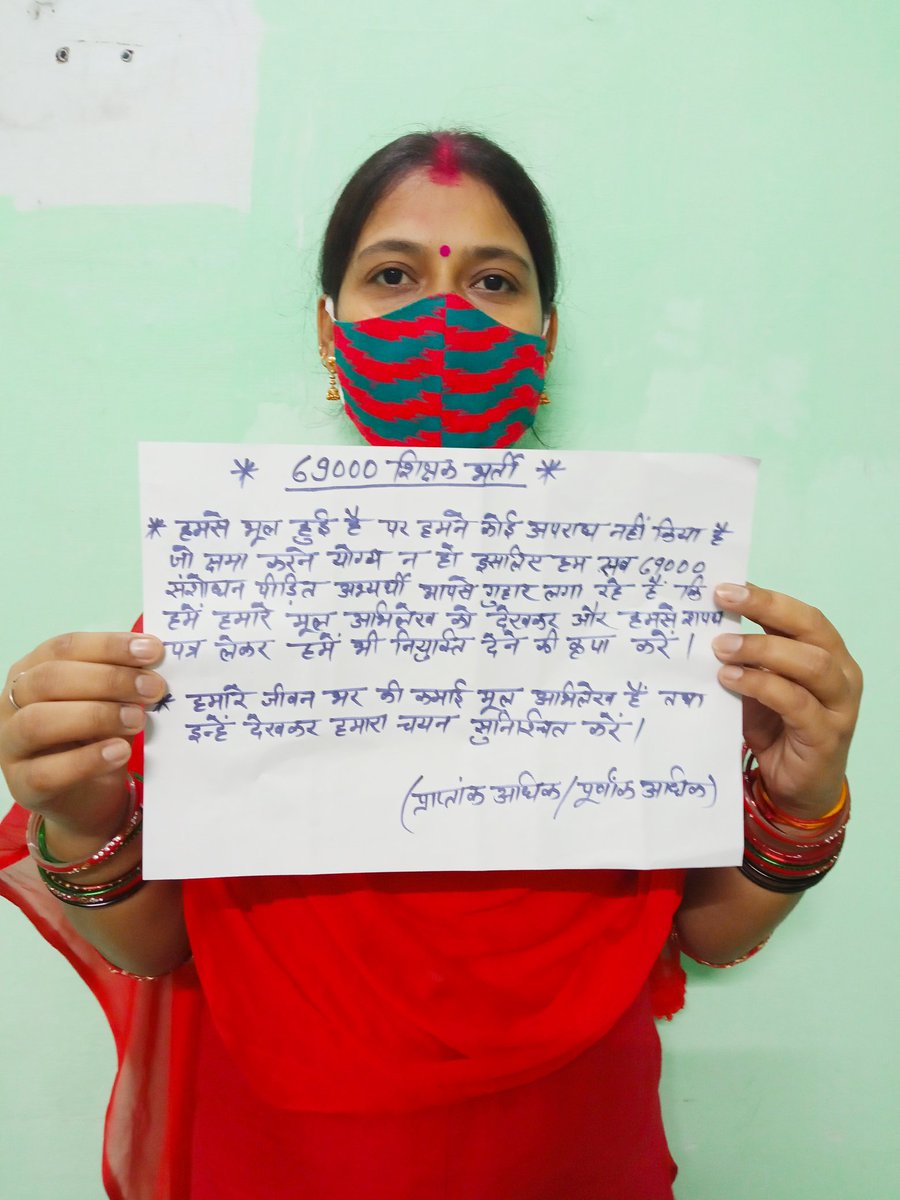 * 69000 शिक्षक भर्ती *
* हमसे भूल हुई है पर हमने कोई अपराध नहीं किया है
जो क्षमा करने योग्य न हो इसलिए हम सब 69000
संशोधन पीड़ित अभ्यर्थी आपसे गुहार लगा रहे हैं कि
हमें हमारे मूल अभिलेख को देखकर और हमसे शपथ
पत्र लेकर हमें भी नियुक्ति देने की कृपा करें।
* हमारे जीवन भर की कमाई मूल अभिलेख हैं तथा
इन्हें देखकर हमारा चयन सुनिश्चित करें।
(प्राप्तांक अधिक/पूर्णांक अधिक)